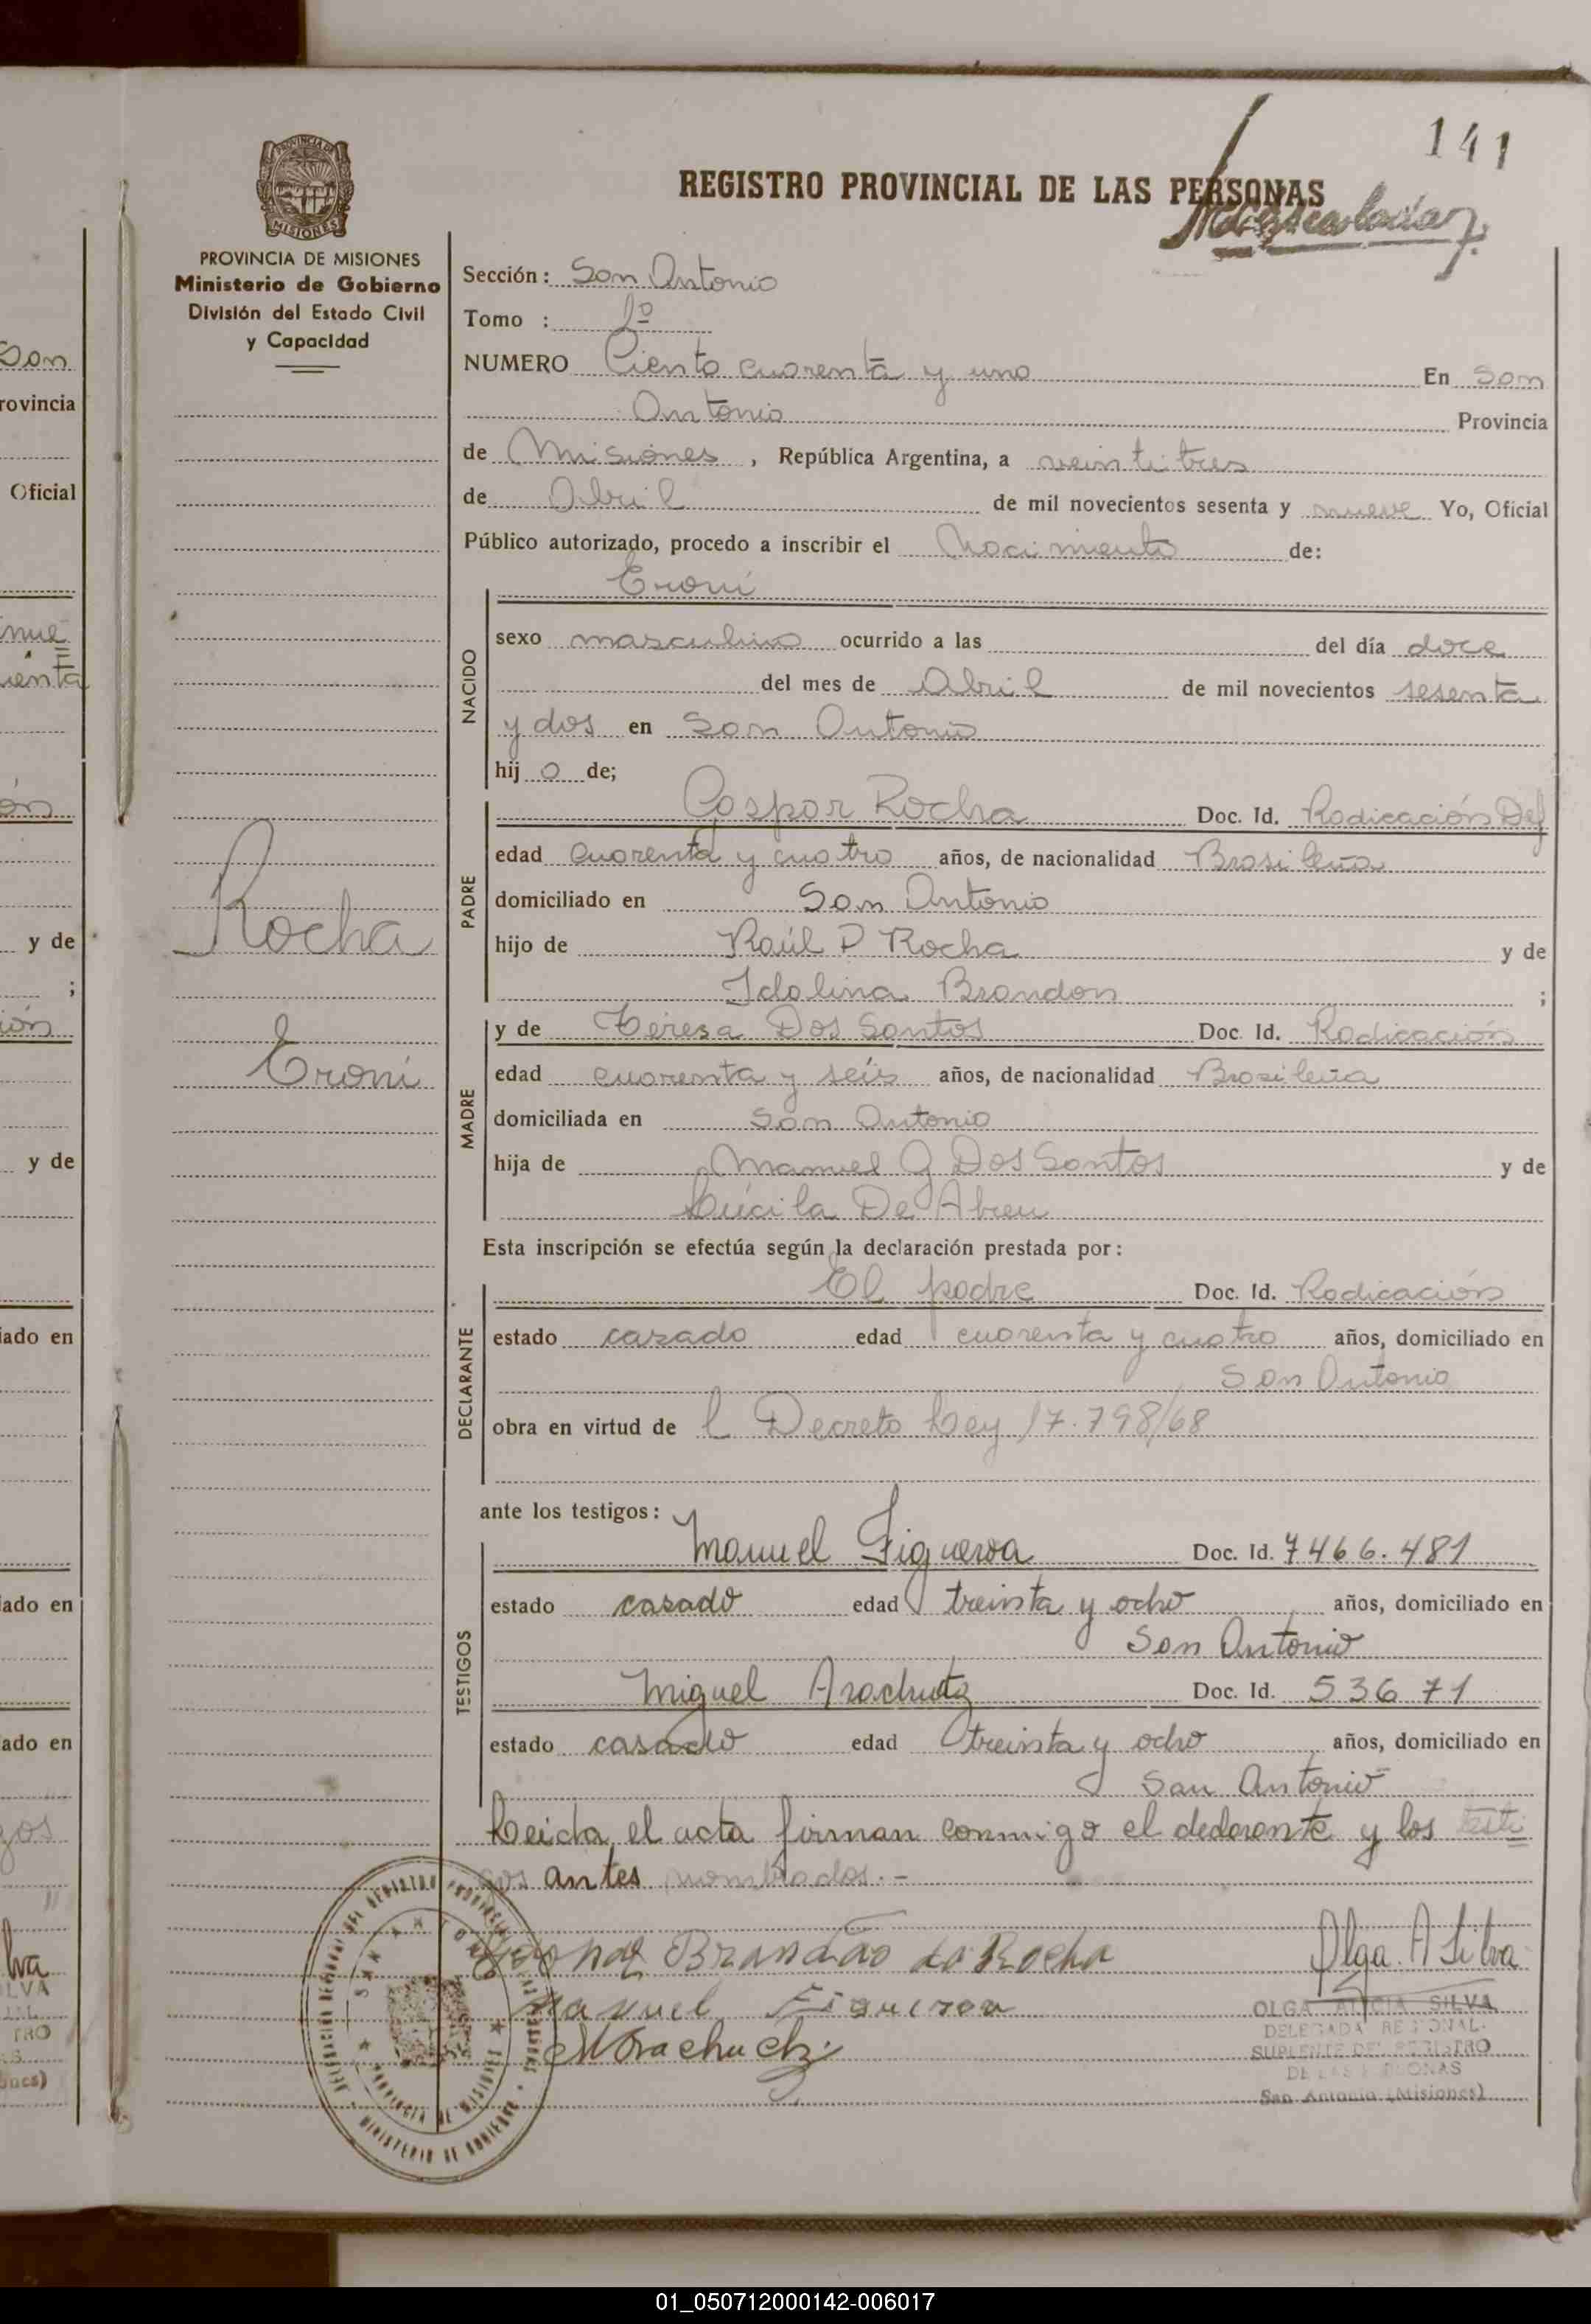 141
REGISTRO PROVINCIAL DE LAS PERSONAS
PROVINCIA DE MISIONES
Ministerio de Gobierno
División del Estado Civil
y Capacidad
Sección: San Antonio
Tomo : 1º
NUMERO Ciento cuarenta y uno En San
Antonio Provincia
de Misiones, República Argentina, a veintitres
de Abril de mil novecientos sesenta y nueve Yo, Oficial
Público autorizado, procedo a inscribir el Nacimiento de:
Eroni
NACIDO
sexo masculino ocurrido a las del día doce
del mes de Abril de mil novecientos sesenta
y dos en San Antonio
hij o de;
PADRE
Gaspar Rocha Doc. Id. Radicación Def
edad cuarenta y cuatro años, de nacionalidad Brasileña
domiciliado en San Antonio
hijo de Raúl P Rocha y de
Idalina Brandon ;
Rocha
Eroni
MADRE
y de Teresa Dos Santos Doc. Id. Radicación
edad cuarenta y seis años, de nacionalidad Brasileña
domiciliada en San Antonio
hija de Manuel G Dos Santos y de
Lucila De Abreu
Esta inscripción se efectúa según la declaración prestada por:
DECLARANTE
El padre Doc. Id. Radicación
estado casado edad cuarenta y cuatro años, domiciliado en
San Antonio
obra en virtud de l Decreto Ley 17.798/68
ante los testigos:
TESTIGOS
Manuel Figueroa Doc. Id. 7466.481
estado casado edad treinta y ocho años, domiciliado en
San Antonio
Miguel Doc. Id. 53671
estado casado edad treinta y ocho años, domiciliado en
San Antonio
Leida el acta firman conmigo el declarante y los testi
gos antes nombrados.-
Brandão da Rocha
Manuel Figueroa
Olga. A Silva
OLGA ALICIA SILVA
DELEGADA REGIONAL
SUPLENTE DEL REGISTRO
DE LAS PERSONAS
San Antonio (Misiones)
01_050712000142-006017